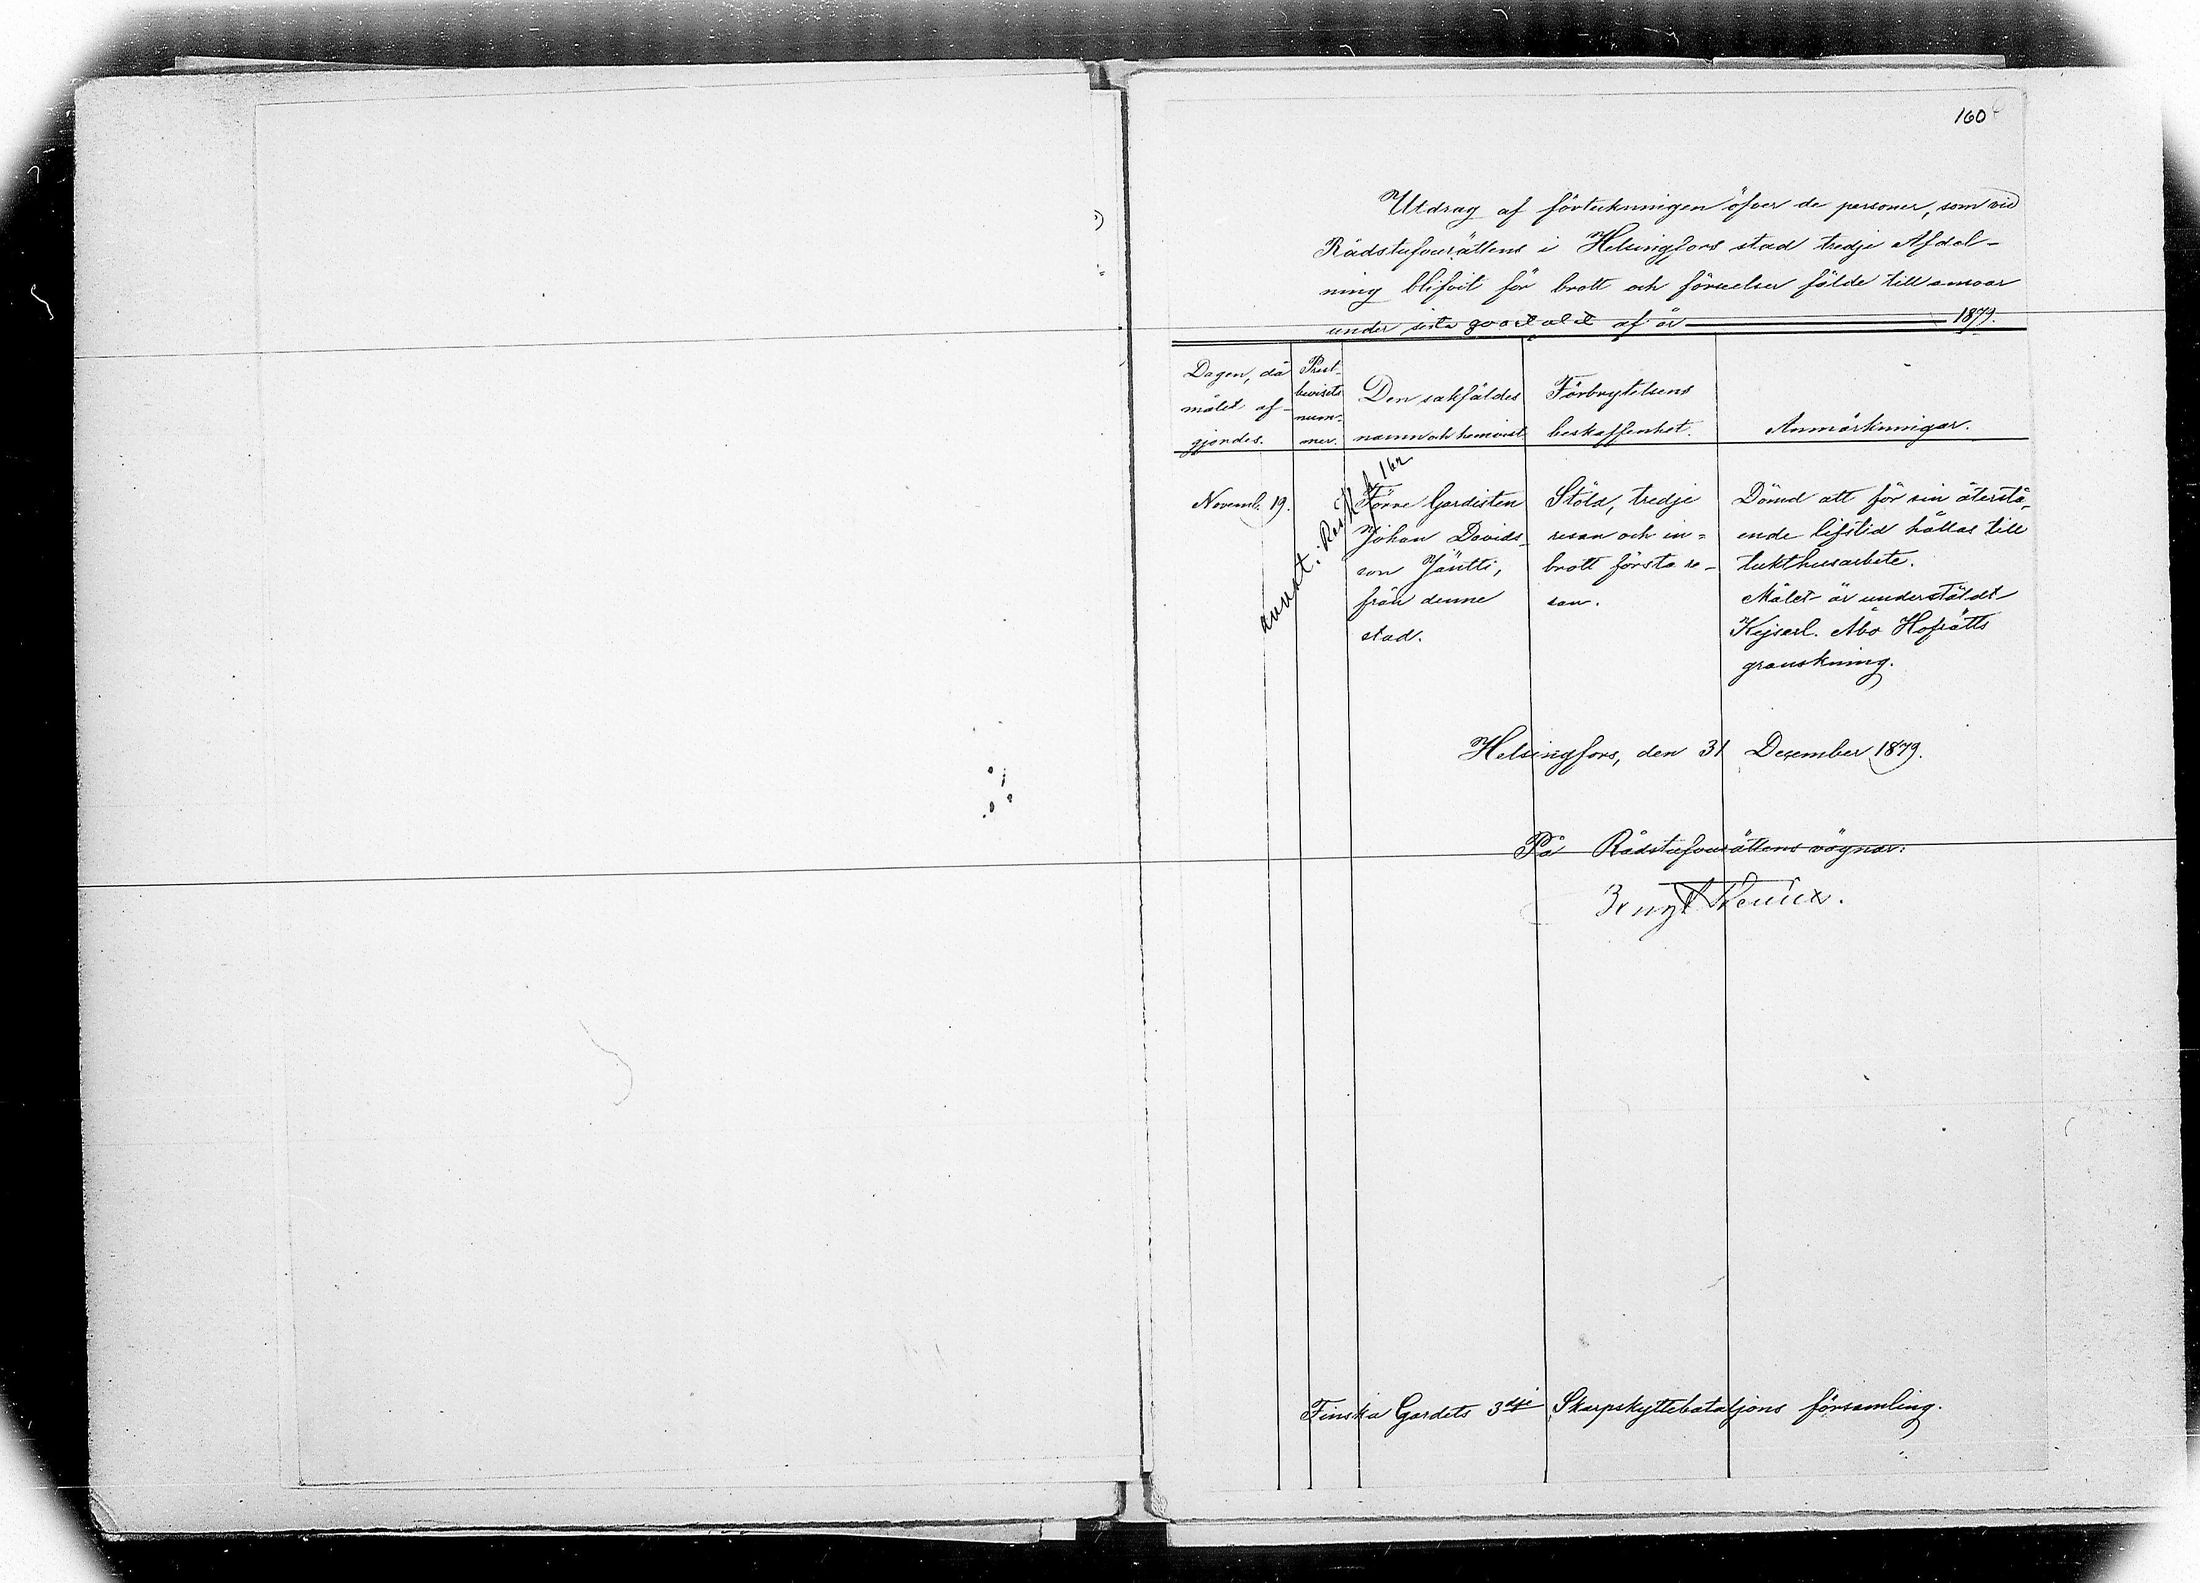 160
Utdrag af förteckningen öfver de personer, som vid
Rådstufvurättens i Helsingfors stad tredje Afdel-
ning blifvit för brott och förseelser fälde till ansvar
under sista qvartalet af år 1879.
Dagen, då
målet af-
gjordes.
Prest-
bevisets
num-
mer.
Den sakfäldes
namn och hemvist
Förbrytelsens
beskaffenhet.
Anmärkningar.
Novemb. 19.
Förre Gardisten
Johan Davids-
son Jäntti,
från denne
stad.
Stöld, tredje
resan och in-
brott första re-
san.
Dömd att för sin återstå-
ende lifstid hållas till
tukthusarbete.
Målet är underställdt
Kejserl. Åbo Hofrätts
granskning.
Helsingfors, den 31 December 1879.
På Rådstufvurättens vägnar:
Finska Gardets 3dje Skarpskyttebataljons församling.